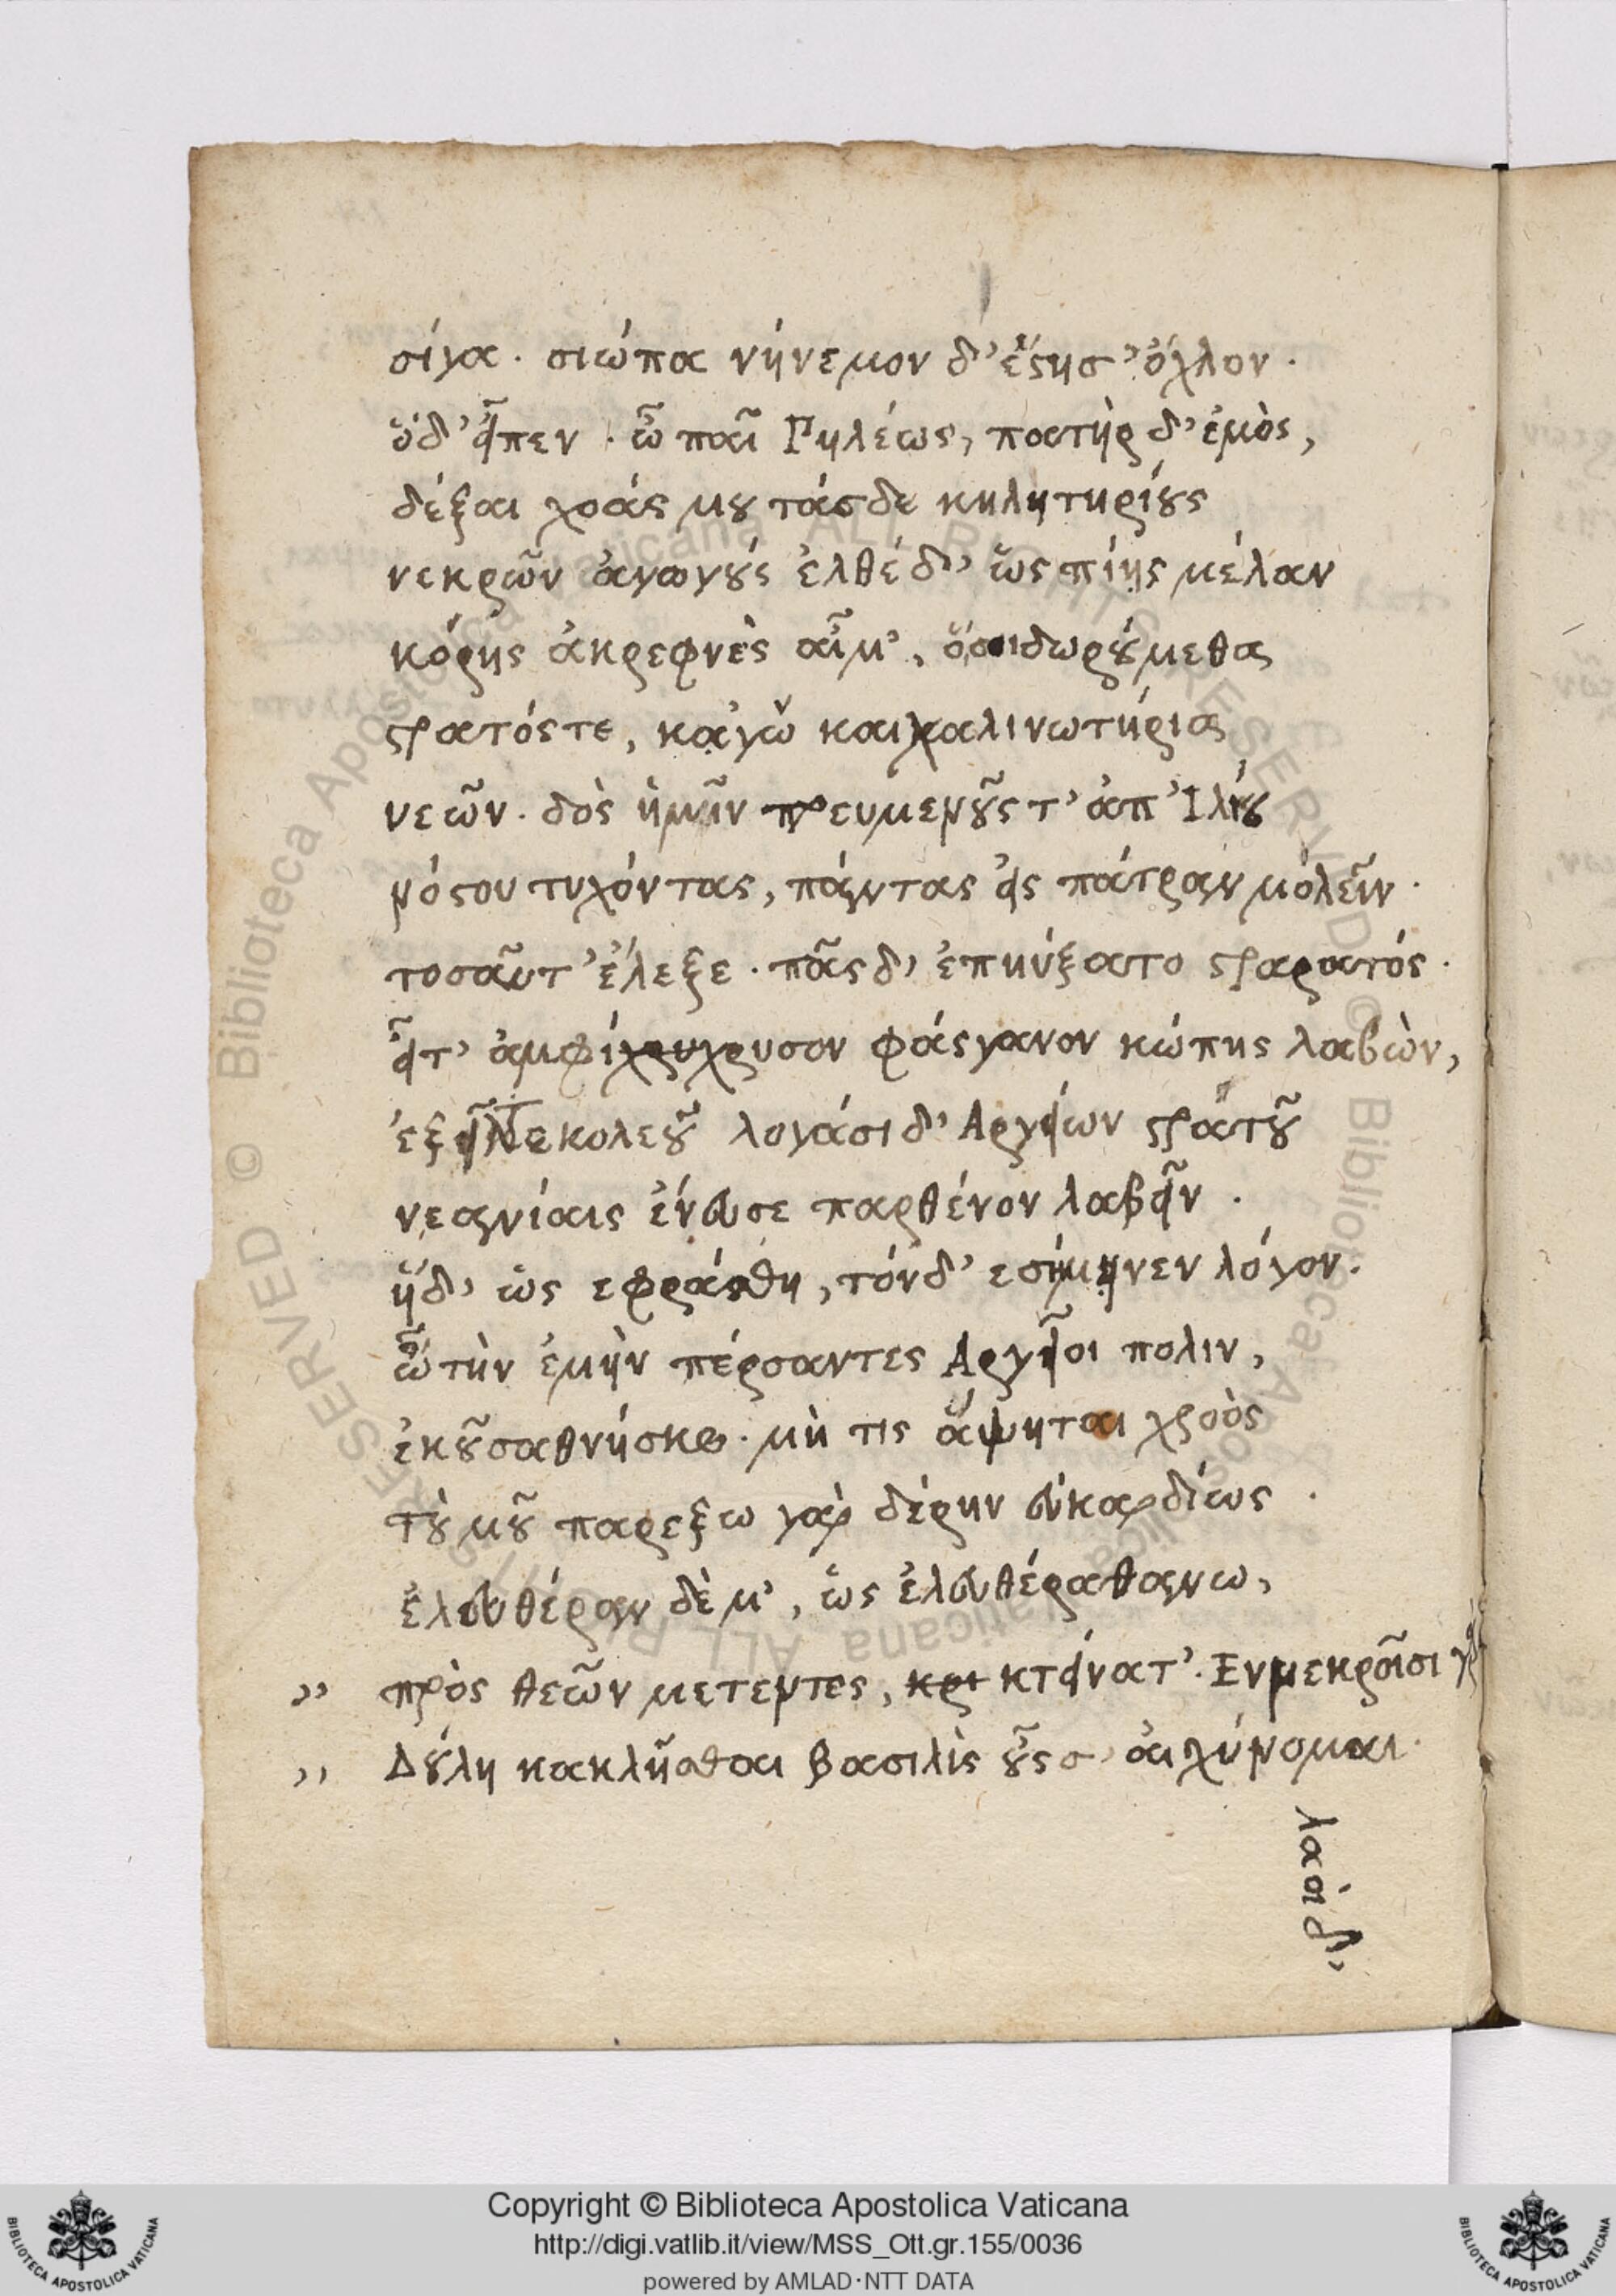 σίγα. σιώπα νήνεμον δ' ἔστησ' ὄχλον.
ὁδ' εἶπεν. ὦ παῖ Πηλέως, πατὴρ δ' ἐμὸς,
δέξαι χοάς μου τάσδε κηλητηρίους
νεκρῶν ἀγωγούς ἐλθέ δ' ὥς πίῃς μέλαν
κόρης ἀκρεφνὲς αἷμ', ὅσοι δωρούμεθα
στρατόςτε, κἀγὼ και χαλινωτήρια
νεῶν. δὸς ἡμῖν πρευμενοῦς τ' ἀπ' Ἰλίου
νόστου τυχόντας, πάντας εἰς πάτραν μόλεῖν.
τοσαῦτ' ἔλεξε. πᾶς δ' ἐπηύξατο στρατός.
εἶτ' ἀμφίχρυσον φάσγανον κώπης λαβὼν,
ἐξεῖλκε κολεοῦ λογάσι δ' Ἀργείων στρατοῦ
νεανίαις ἔνευσε παρθένον λαβεῖν.
ἥδ' ὡς εφράσθη, τόνδ' εσήμηνεν λόγον.
ὦ τὴν ἐμὴν πέρσαντες Ἀργεῖοι πολιν,
ἑκοῦσα θνήσκω. μὴ τις ἅψηται χροὸς
τοὐμοῦ παρεξω γὰρ δέρην εὐκαρδίως.
ἐλευθέραν δὲ μ', ὡς ἐλευθέρα θανω,
" πρὸς θεῶν μετεντες, κτείνατ'. Εν νεκροῖσι γὰρ
" Δούλη κεκλῆσθαι βασιλὶς οὖσ' αἰχύνομαι.
λαοὶ δ'
Copyright © Biblioteca Apostolica Vaticana
http://digi.vatlib.it/view/MSS_Ott.gr.155/0036
powered by AMLAD·NTT DATA